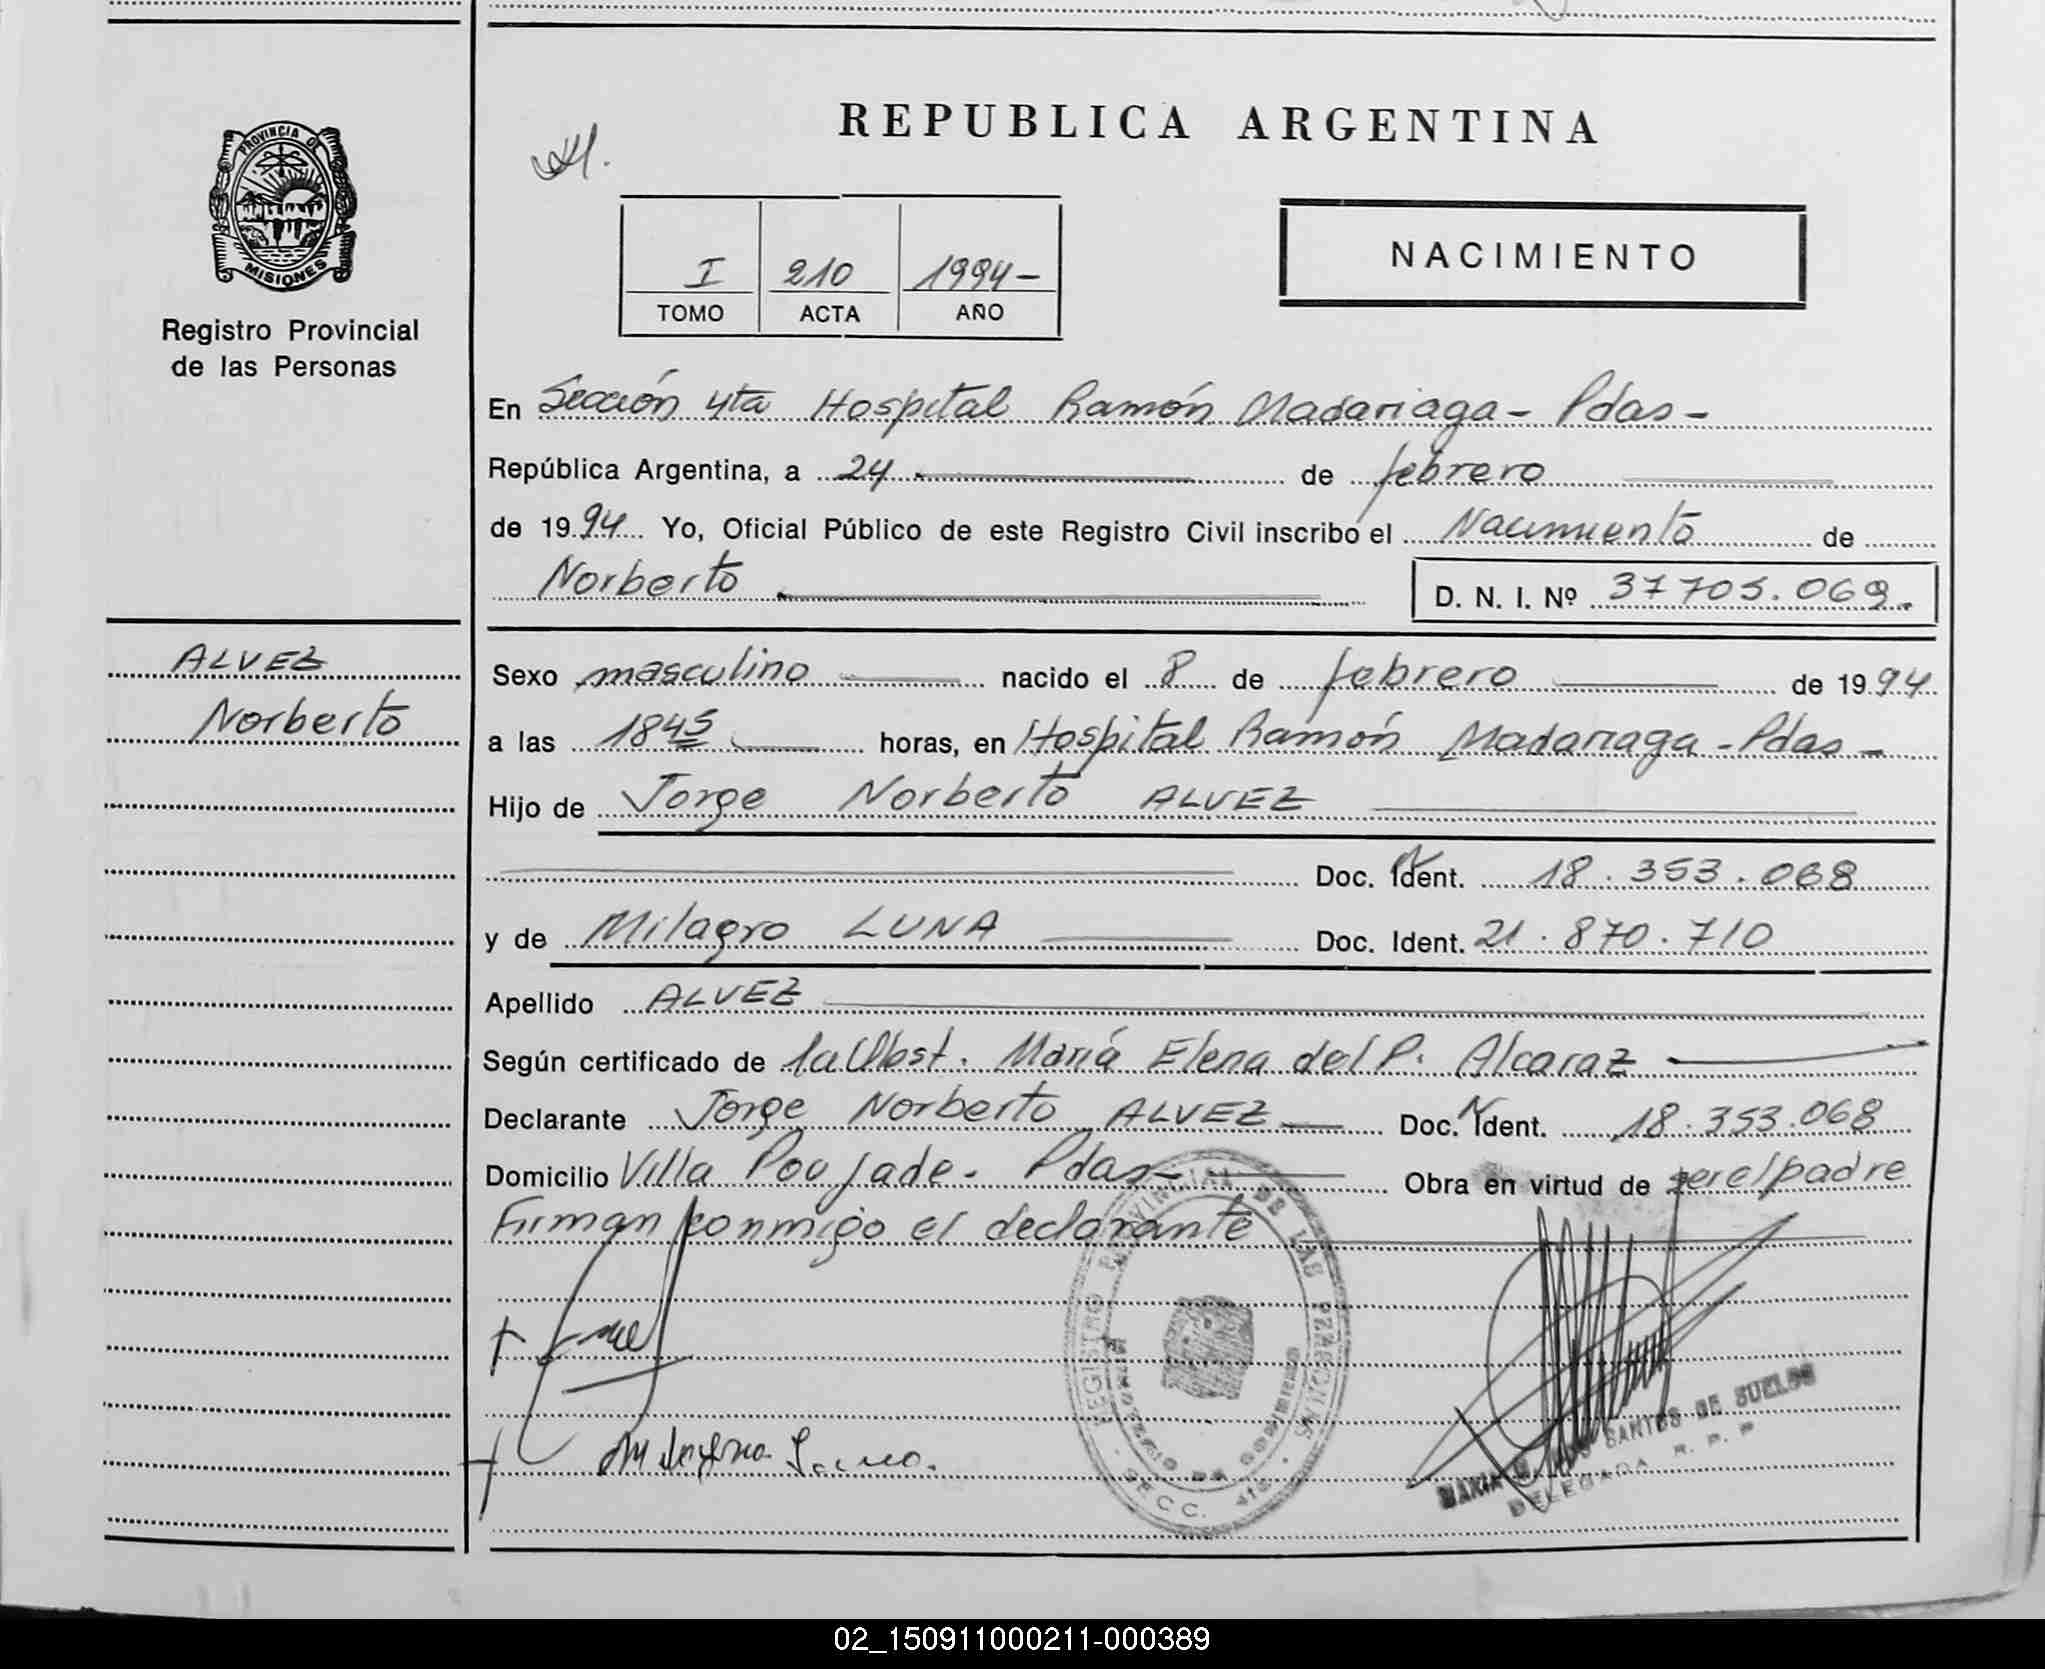 PROVINCIA DE
MISIONES
Registro Provincial
de las Personas
ALVEZ
Norberto
REPUBLICA ARGENTINA
I 210 1994-
TOMO ACTA AÑO
NACIMIENTO
En Sección 4ta Hospital Ramón Madariaga - Pdas -
República Argentina, a 24 de febrero
de 1994 Yo, Oficial Público de este Registro Civil inscribo el Nacimiento de
Norberto D. N. I. Nº 37705.069.
Sexo masculino nacido el 8 de febrero de 1994
a las 1845 horas, en Hospital Ramón Madariaga - Pdas -
Hijo de Jorge Norberto ALVEZ
Doc. Ident. 18.353.068
y de Milagro LUNA Doc. Ident. 21.870.710
Apellido ALVEZ
Según certificado de la Obst. María Elena del P. Alcaraz
Declarante Jorge Norberto ALVEZ Doc. Ident. 18.353.068
Domicilio Villa Poujade. Pdas - Obra en virtud de ser el padre
Firman conmigo el declarante
REGISTRO PROVINCIAL DE LAS PERSONAS
MINISTERIO DE GOBIERNO
SECC. 4ta.
MARIA SANTOS DE SUELOS
DELEGADA R. P. P
02_150911000211-000389